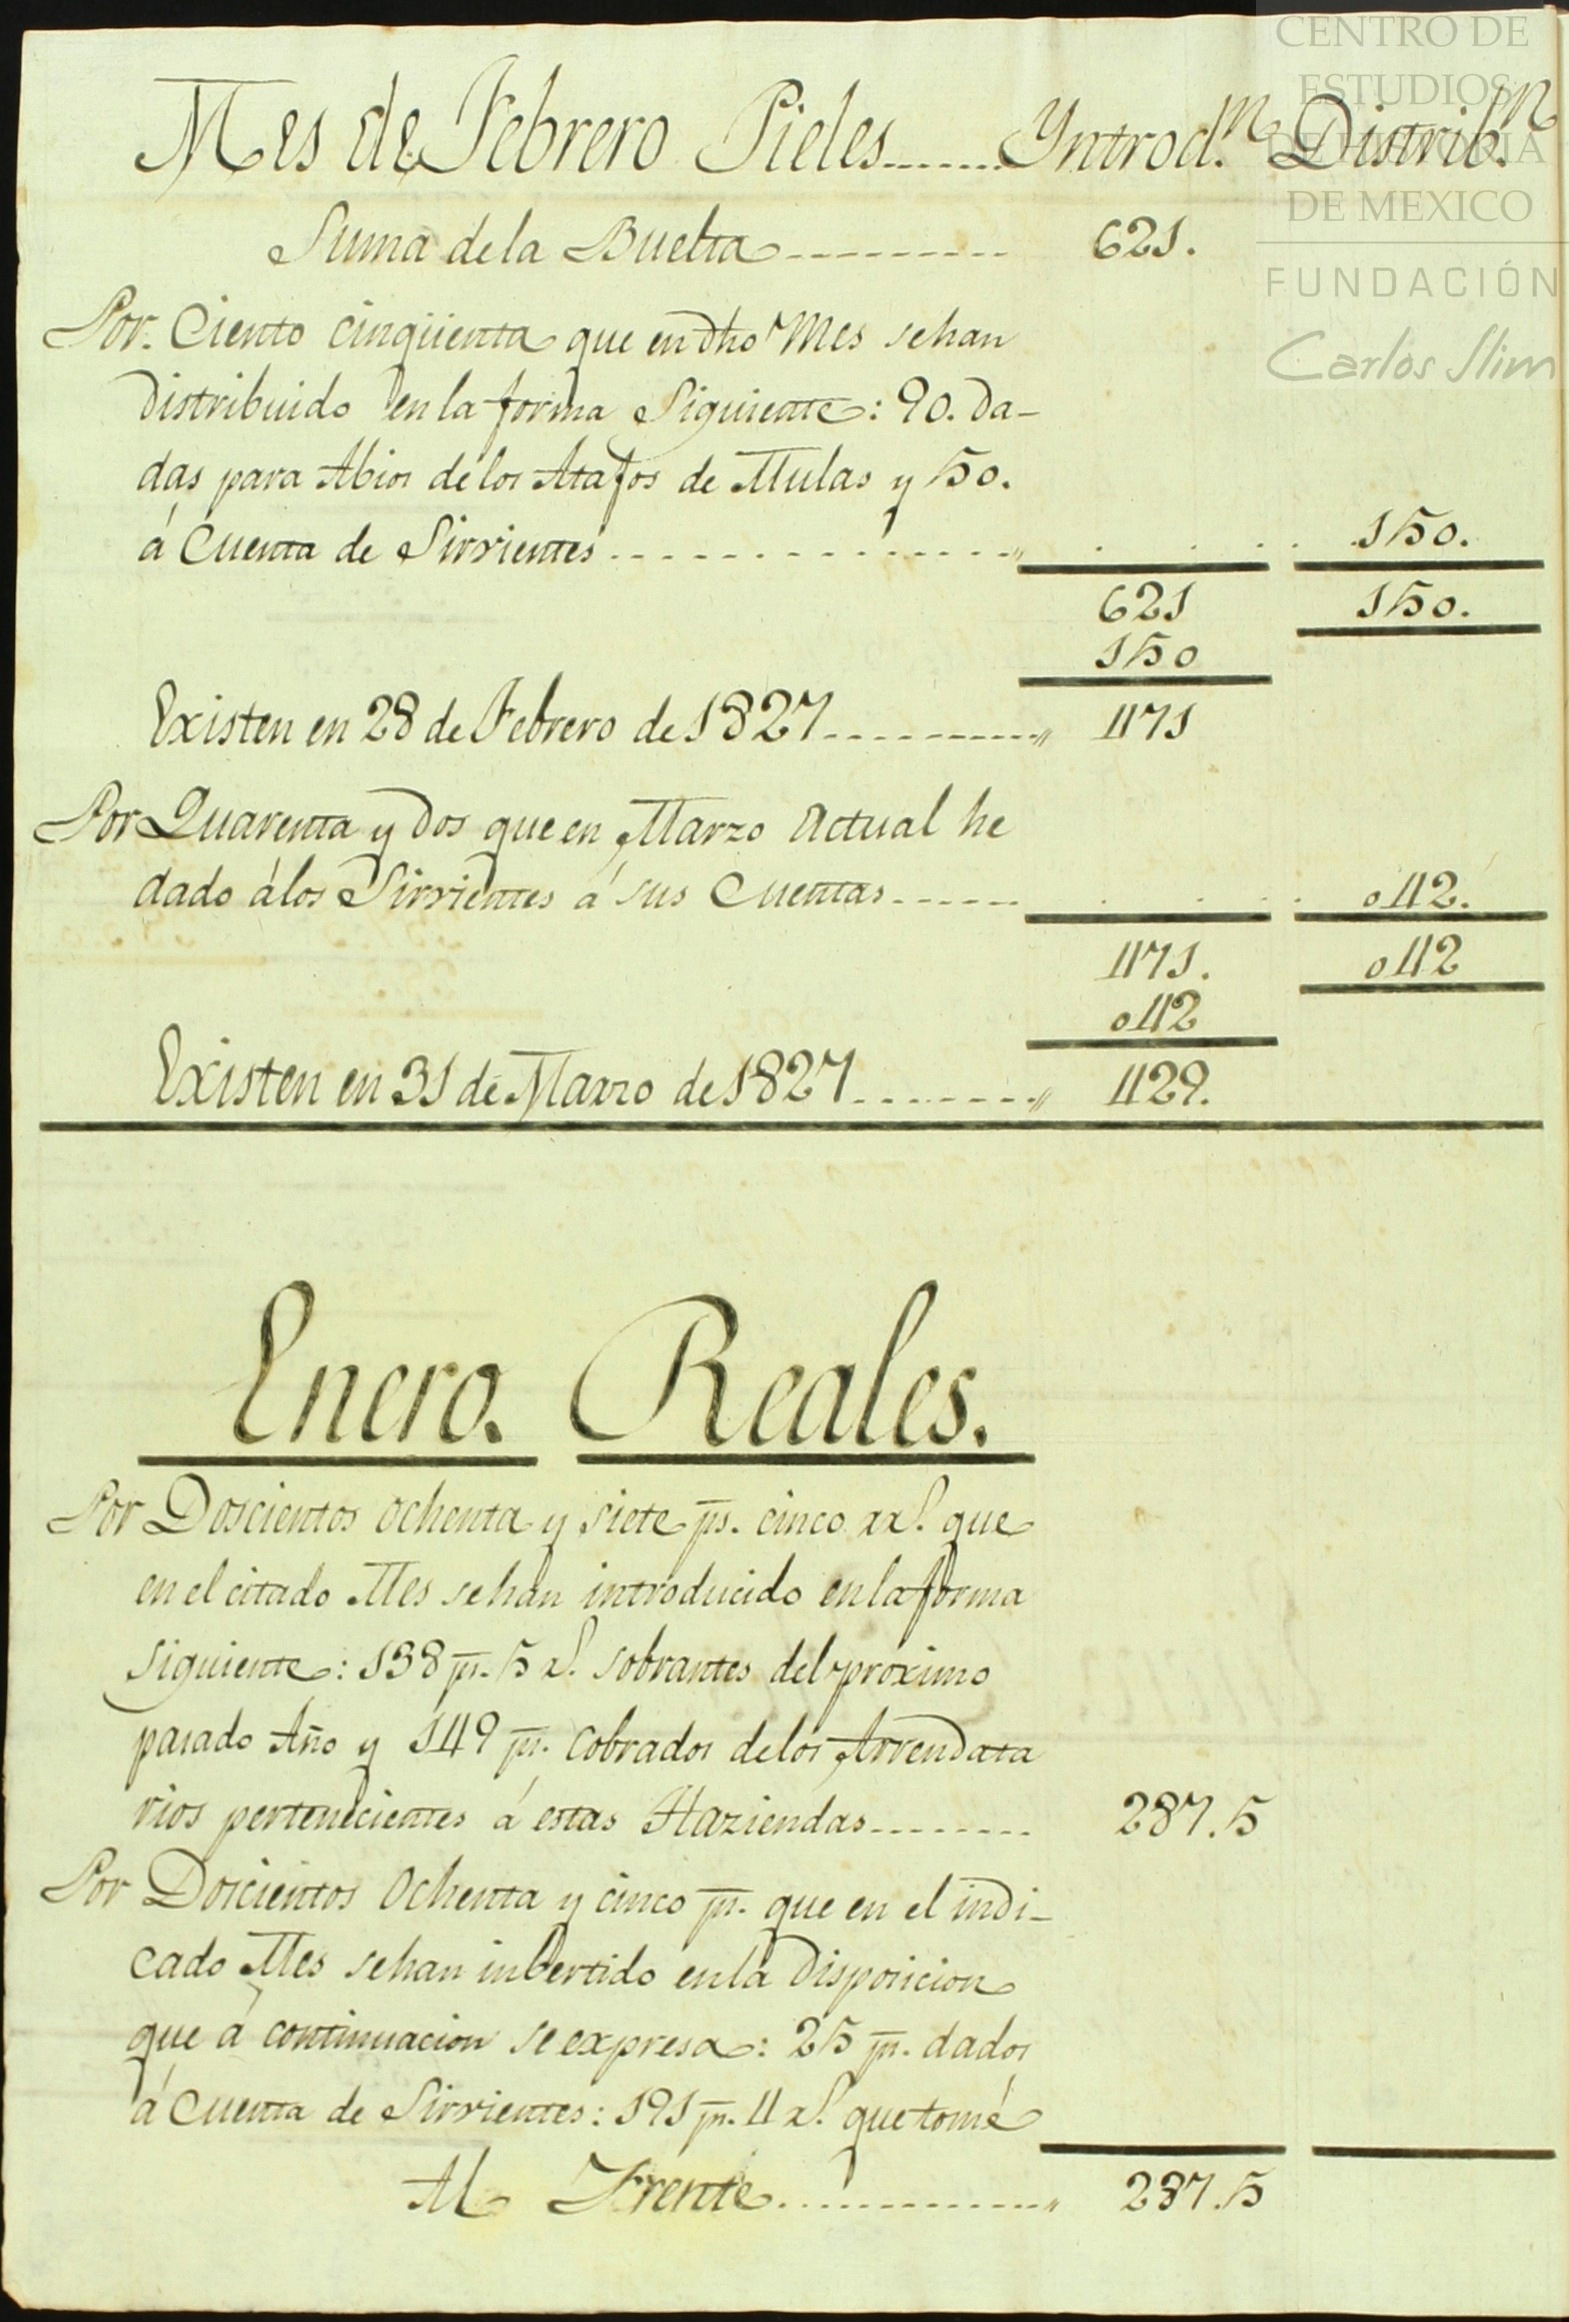 CENTRO DE
ESTUDIOS
DE HISTORIA
DE MEXICO
FUNDACIÓN
Carlos Slim
Mes de Febrero Pieles....... Yntrod.n Distrib.n
Suma de la Buelta --------- 621.
Por Ciento cinqüenta que en dho Mes se han
distribuido en la forma Siguiente: 90. da-
das para Abios de los Atajos de Mulas y 50.
á Cuenta de Sirvientes .............." . . . 150.
621 150.
150
Existen en 28 de Febrero de 1827 ----------" 471
Por Quarenta y dos que en Marzo Actual he
dado á los Sirvientes á sus Cuentas ------ . . . 042.
471. 042
042
Existen en 31 de Marzo de 1827 --------" 429.
Enero. Reales.
Por Doscientos ochenta y siete ps. cinco rs. que
en el citado Mes se han introducido en la forma
siguiente: 138 ps. 5 rs. sobrantes del proximo
pasado Año y 149 ps. cobrados de los Arrendata
rios pertenecientes á estas Haziendas -------- 287.5
Por Doscientos Ochenta y cinco ps. que en el indi-
cado Mes se han inbertido en la Disposicion
que á continuacion se expresa: 25 ps. dados
á Cuenta de Sirvientes: 191 ps. 4 rs. que tomé
Al Frente .............." 287.5